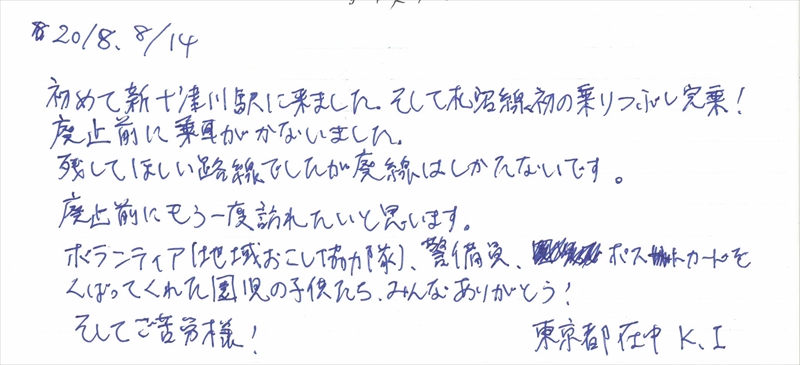 2018、8/14
初めて新十津川駅に来ました。そして札沼線初の乗りつぶし完乗！
廃止前に乗車がかないました。
残してほしい路線でしたが廃線はしかたないです。
廃止前にもう一度訪れたいと思います。
ボランティア(地域おこし協力隊)、警備員、ポストカードを
くばってくれた園児の子供たち、みんなありがとう！
そしてご苦労様！
東京都在中 K、I